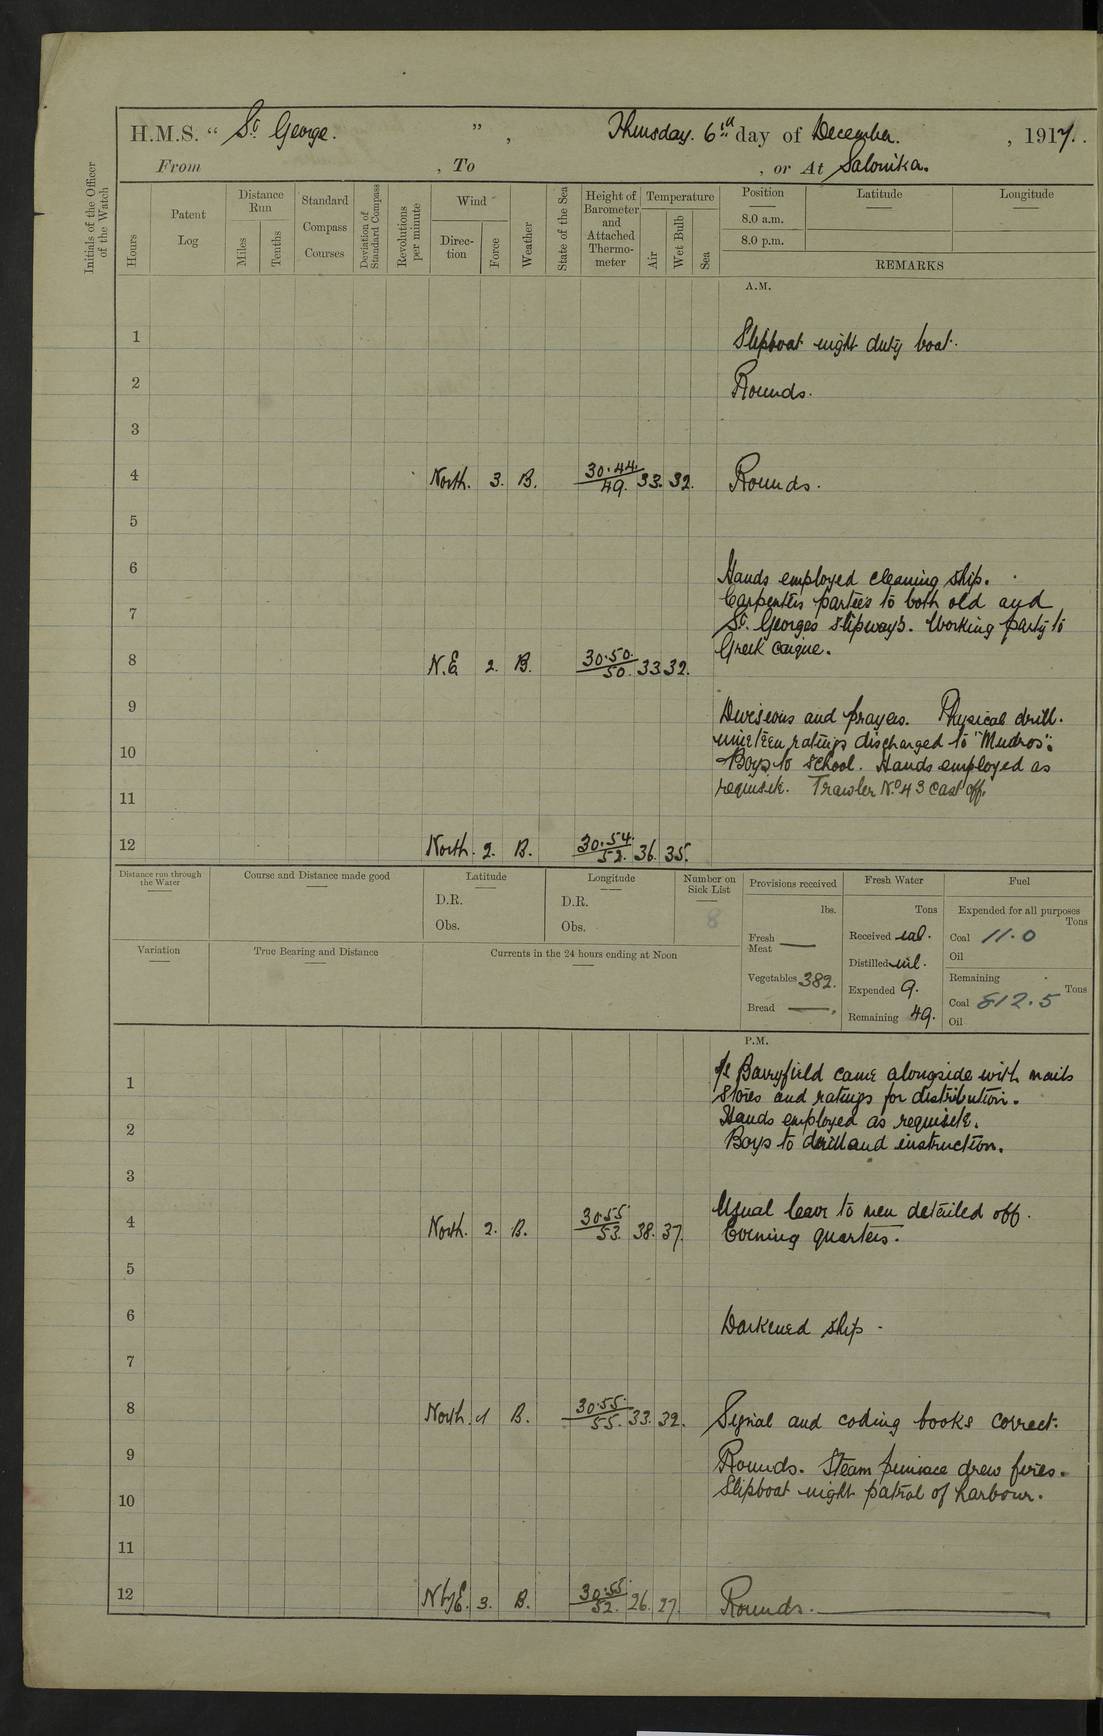 H.M.S. " St. George. " , Thursday. 6th day of December. , 1917.
From , To , or At Salonika.
Initials of the Officer of the Watch
Hours
Patent Log
Distance Run
Miles
Tenths
Standard Compass Courses
Deviation of Standard Compass
Revolutions per minute
Wind
Direction
Force
Weather
State of the Sea
Height of Barometer and Attached Thermometer
Temperature
Air
Wet Bulb
Sea
Position
8.0 a.m.
8.0 p.m.
Latitude
Longitude
REMARKS
A.M.
1 Slipboat night duty boat.
2 Rounds.
3
4 North. 3. B. 30.44. 49. 33. 32. Rounds.
5
6 Hands employed cleaning ship.
Carpenters parties to both old and
7 St. Georges slipways. Working party to
Greek caique.
8 N.E 2. B. 30.50. 50. 33 32.
9 Divisions and prayers. Physical drill.
nineteen ratings discharged to "Mudros".
10 Boys to school. Hands employed as
requisite. Trawler No. 43 cast off.
11
12 North. 2. B. 30.54. 52. 36. 35.
Distance run through the Water
Course and Distance made good
Latitude
D.R.
Obs.
Longitude
D.R.
Obs.
Number on Sick List
8
Provisions received
lbs.
Fresh Meat —
Vegetables 382.
Bread —
Fresh Water
Tons
Received nil.
Distilled nil.
Expended 9.
Remaining 49.
Fuel
Expended for all purposes
Tons
Coal 11.0
Oil
Remaining
Tons
Coal 812.5
Oil
Variation
True Bearing and Distance
Currents in the 24 hours ending at Noon
P.M.
1 Barryfield came alongside with mails
stores and ratings for distribution.
Hands employed as requisite.
2 Boys to drill and instruction.
3
4 North. 2. B. 30.55 53. 38. 37. Usual leave to men detailed off.
Evening quarters.
5
6 Darkened ship
7
8 North. 1 B. 30.55. 55. 33. 32. Signal and coding books correct.
9 Rounds. Steam pinnace drew fires.
10 Slipboat night patrol of harbour.
11
12 N by E. 3. B. 30.55. 52. 26. 27. Rounds.